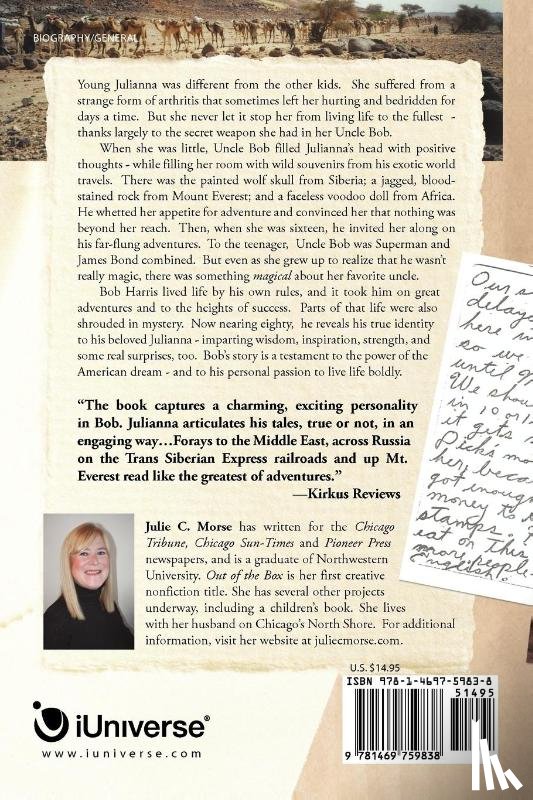 BIOGRAPHY/GENERAL
Young Julianna was different from the other kids. She suffered from a
strange form of arthritis that sometimes left her hurting and bedridden for
days a time. But she never let it stop her from living life to the fullest -
thanks largely to the secret weapon she had in her Uncle Bob.
When she was little, Uncle Bob filled Julianna's head with positive
thoughts - while filling her room with wild souvenirs from his exotic world
travels. There was the painted wolf skull from Siberia; a jagged, blood-
stained rock from Mount Everest; and a faceless voodoo doll from Africa.
He whetted her appetite for adventure and convinced her that nothing was
beyond her reach. Then, when she was sixteen, he invited her along on
his far-flung adventures. To the teenager, Uncle Bob was Superman and
James Bond combined. But even as she grew up to realize that he wasn't
really magic, there was something magical about her favorite uncle.
Bob Harris lived life by his own rules, and it took him on great
adventures and to the heights of success. Parts of that life were also
shrouded in mystery. Now nearing eighty, he reveals his true identity
to his beloved Julianna - imparting wisdom, inspiration, strength, and
some real surprises, too. Bob's story is a testament to the power of the
American dream - and to his personal passion to live life boldly.
"The book captures a charming, exciting personality
in Bob. Julianna articulates his tales, true or not, in an
engaging way…Forays to the Middle East, across Russia
on the Trans Siberian Express railroads and up Mt.
Everest read like the greatest of adventures."
—Kirkus Reviews
Our s
delaye
here in
so we
until 9
We shou
in 10 or 1
it gets
Picks mo
her, beca
got enoug
money to
stamps
eat on this
more people
English!
Julie C. Morse has written for the Chicago
Tribune, Chicago Sun-Times and Pioneer Press
newspapers, and is a graduate of Northwestern
University. Out of the Box is her first creative
nonfiction title. She has several other projects
underway, including a children's book. She lives
with her husband on Chicago's North Shore. For additional
information, visit her website at juliecmorse.com.
U.S. $14.95
ISBN 978-1-4697-5983-8
51495
9 781469 759838
iUniverse®
www.iuniverse.com